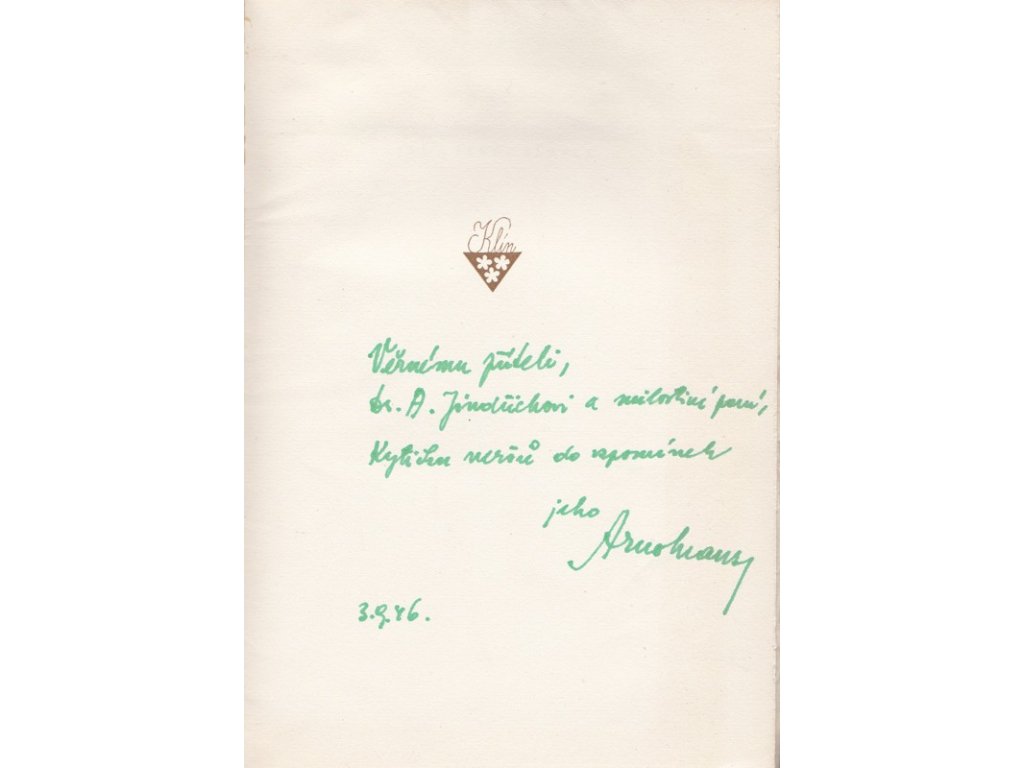 Klín
Věrnému příteli,
dr. A. Jindřichovi a milostivé paní,
Kytičku veršů do vzpomínek
jeho
3.9.46.